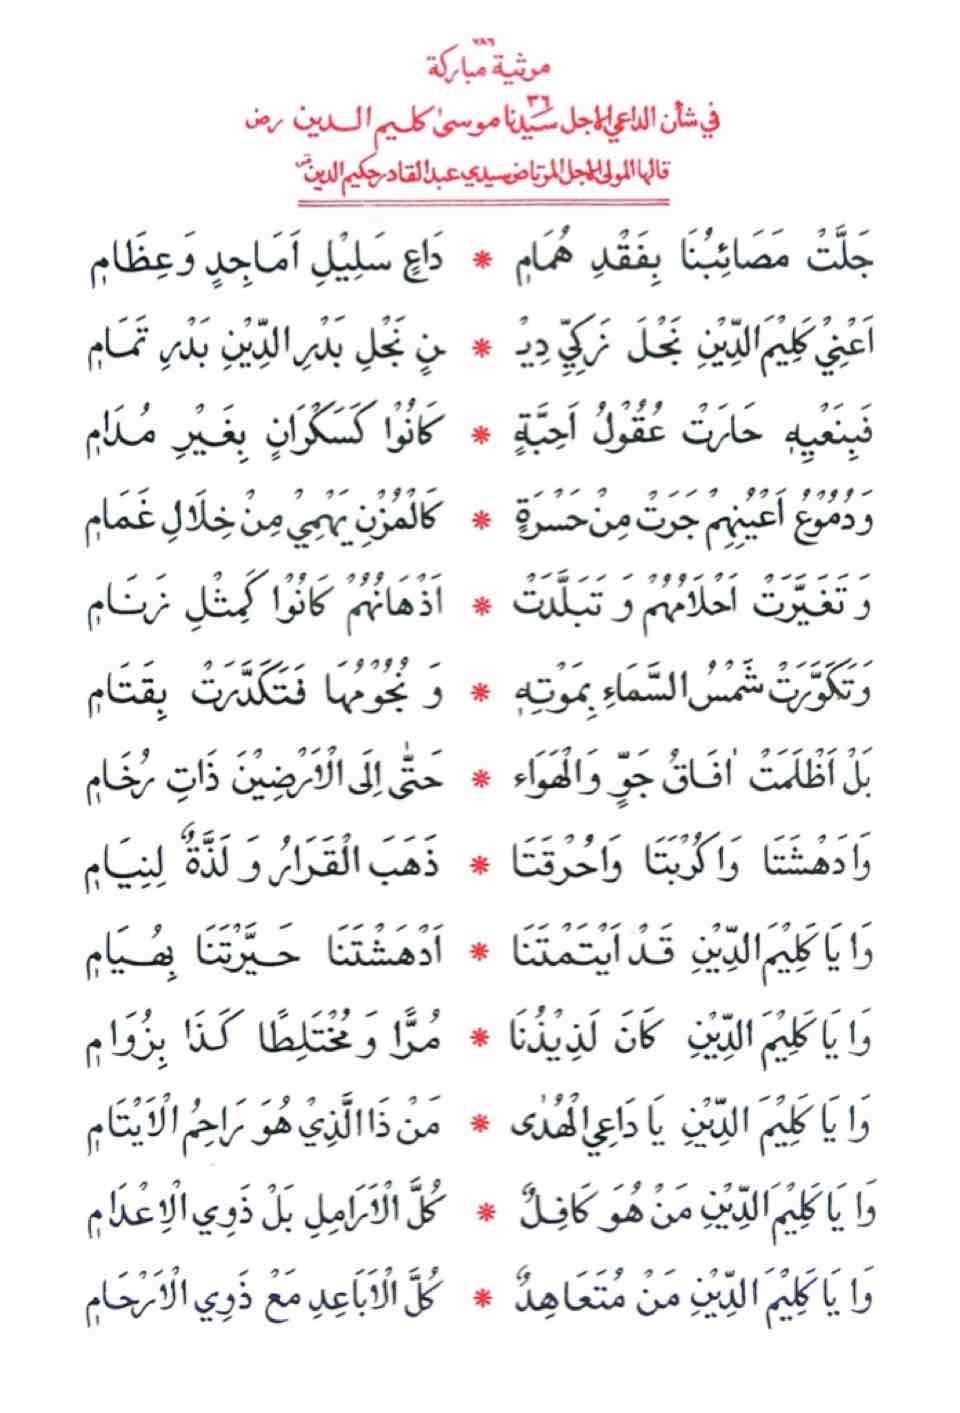 ٧٨٦
مرثية مباركة
في شأن الداعي الاجل سيدنا موسىٰ كليم الدين رض
٣٦
قالها المولى الاجل المرتاض سيدي عبد القادر حكيم الدين ق س
جَلَّتْ مَصَائِبُنَا بِفَقْدِ هُمَامٍ * دَاعٍ سَلِيْلِ اَمَاجِدٍ وَعِظَامٍ
اَعْنِيْ كَلِيْمَ الدِّيْنِ نَجْلَ زَكِيِّ دِيْـ * ـنٍ نَجْلِ بَدْرِ الدِّيْنِ بَدْرِ تَمَامٍ
فَبِنَعْيِهٖ حَارَتْ عُقُوْلُ اَحِبَّةٍ * كَانُوْا كَسَكْرَانٍ بِغَيْرِ مُدَامٍ
وَدُمُوْعُ اَعْيُنِهِمْ جَرَتْ مِنْ حَسْرَةٍ * كَالْمُزْنِ يَهْمِيْ مِنْ خِلَالِ غَمَامٍ
وَ تَغَيَّرَتْ اَحْلَامُهُمْ وَ تَبَلَّدَتْ * اَذْهَانُهُمْ كَانُوْا كَمِثْلِ زَنَامٍ
وَ تَكَوَّرَتْ شَمْسُ السَّمَاءِ بِمَوْتِهٖ * وَ نُجُوْمُهَا فَتَكَدَّرَتْ بِقَتَامٍ
بَلْ اَظْلَمَتْ اٰفَاقُ جَوٍّ وَالْهَوَاء * حَتّٰى اِلَى الْاَرْضِيْنَ ذَاتِ رُخَامٍ
وَادَهْشَتَا وَاكُرْبَتَا وَاحُرْقَتَا * ذَهَبَ الْقَرَارُ وَ لَذَّةٌ لِنِيَامٍ
وَا يَا كَلِيْمَ الدِّيْنِ قَدْ اَيْتَمْتَنَا * اَدْهَشْتَنَا حَيَّرْتَنَا بِهُيَامٍ
وَا يَا كَلِيْمَ الدِّيْنِ كَانَ لَذِيْذُنَا * مُرًّا وَ مُخْتَلِطًا كَذَا بِزُوَامٍ
وَا يَا كَلِيْمَ الدِّيْنِ يَا دَاعِي الْهُدٰى * مَنْ ذَا الَّذِيْ هُوَ رَاحِمُ الْاَيْتَامِ
وَا يَا كَلِيْمَ الدِّيْنِ مَنْ هُوَ كَافِلٌ * كُلَّ الْاَرَامِلِ بَلْ ذَوِي الْاِعْدَامِ
وَا يَا كَلِيْمَ الدِّيْنِ مَنْ مُتَعَاهِدٌ * كُلَّ الْاَبَاعِدِ مَعْ ذَوِي الْاَرْحَامِ